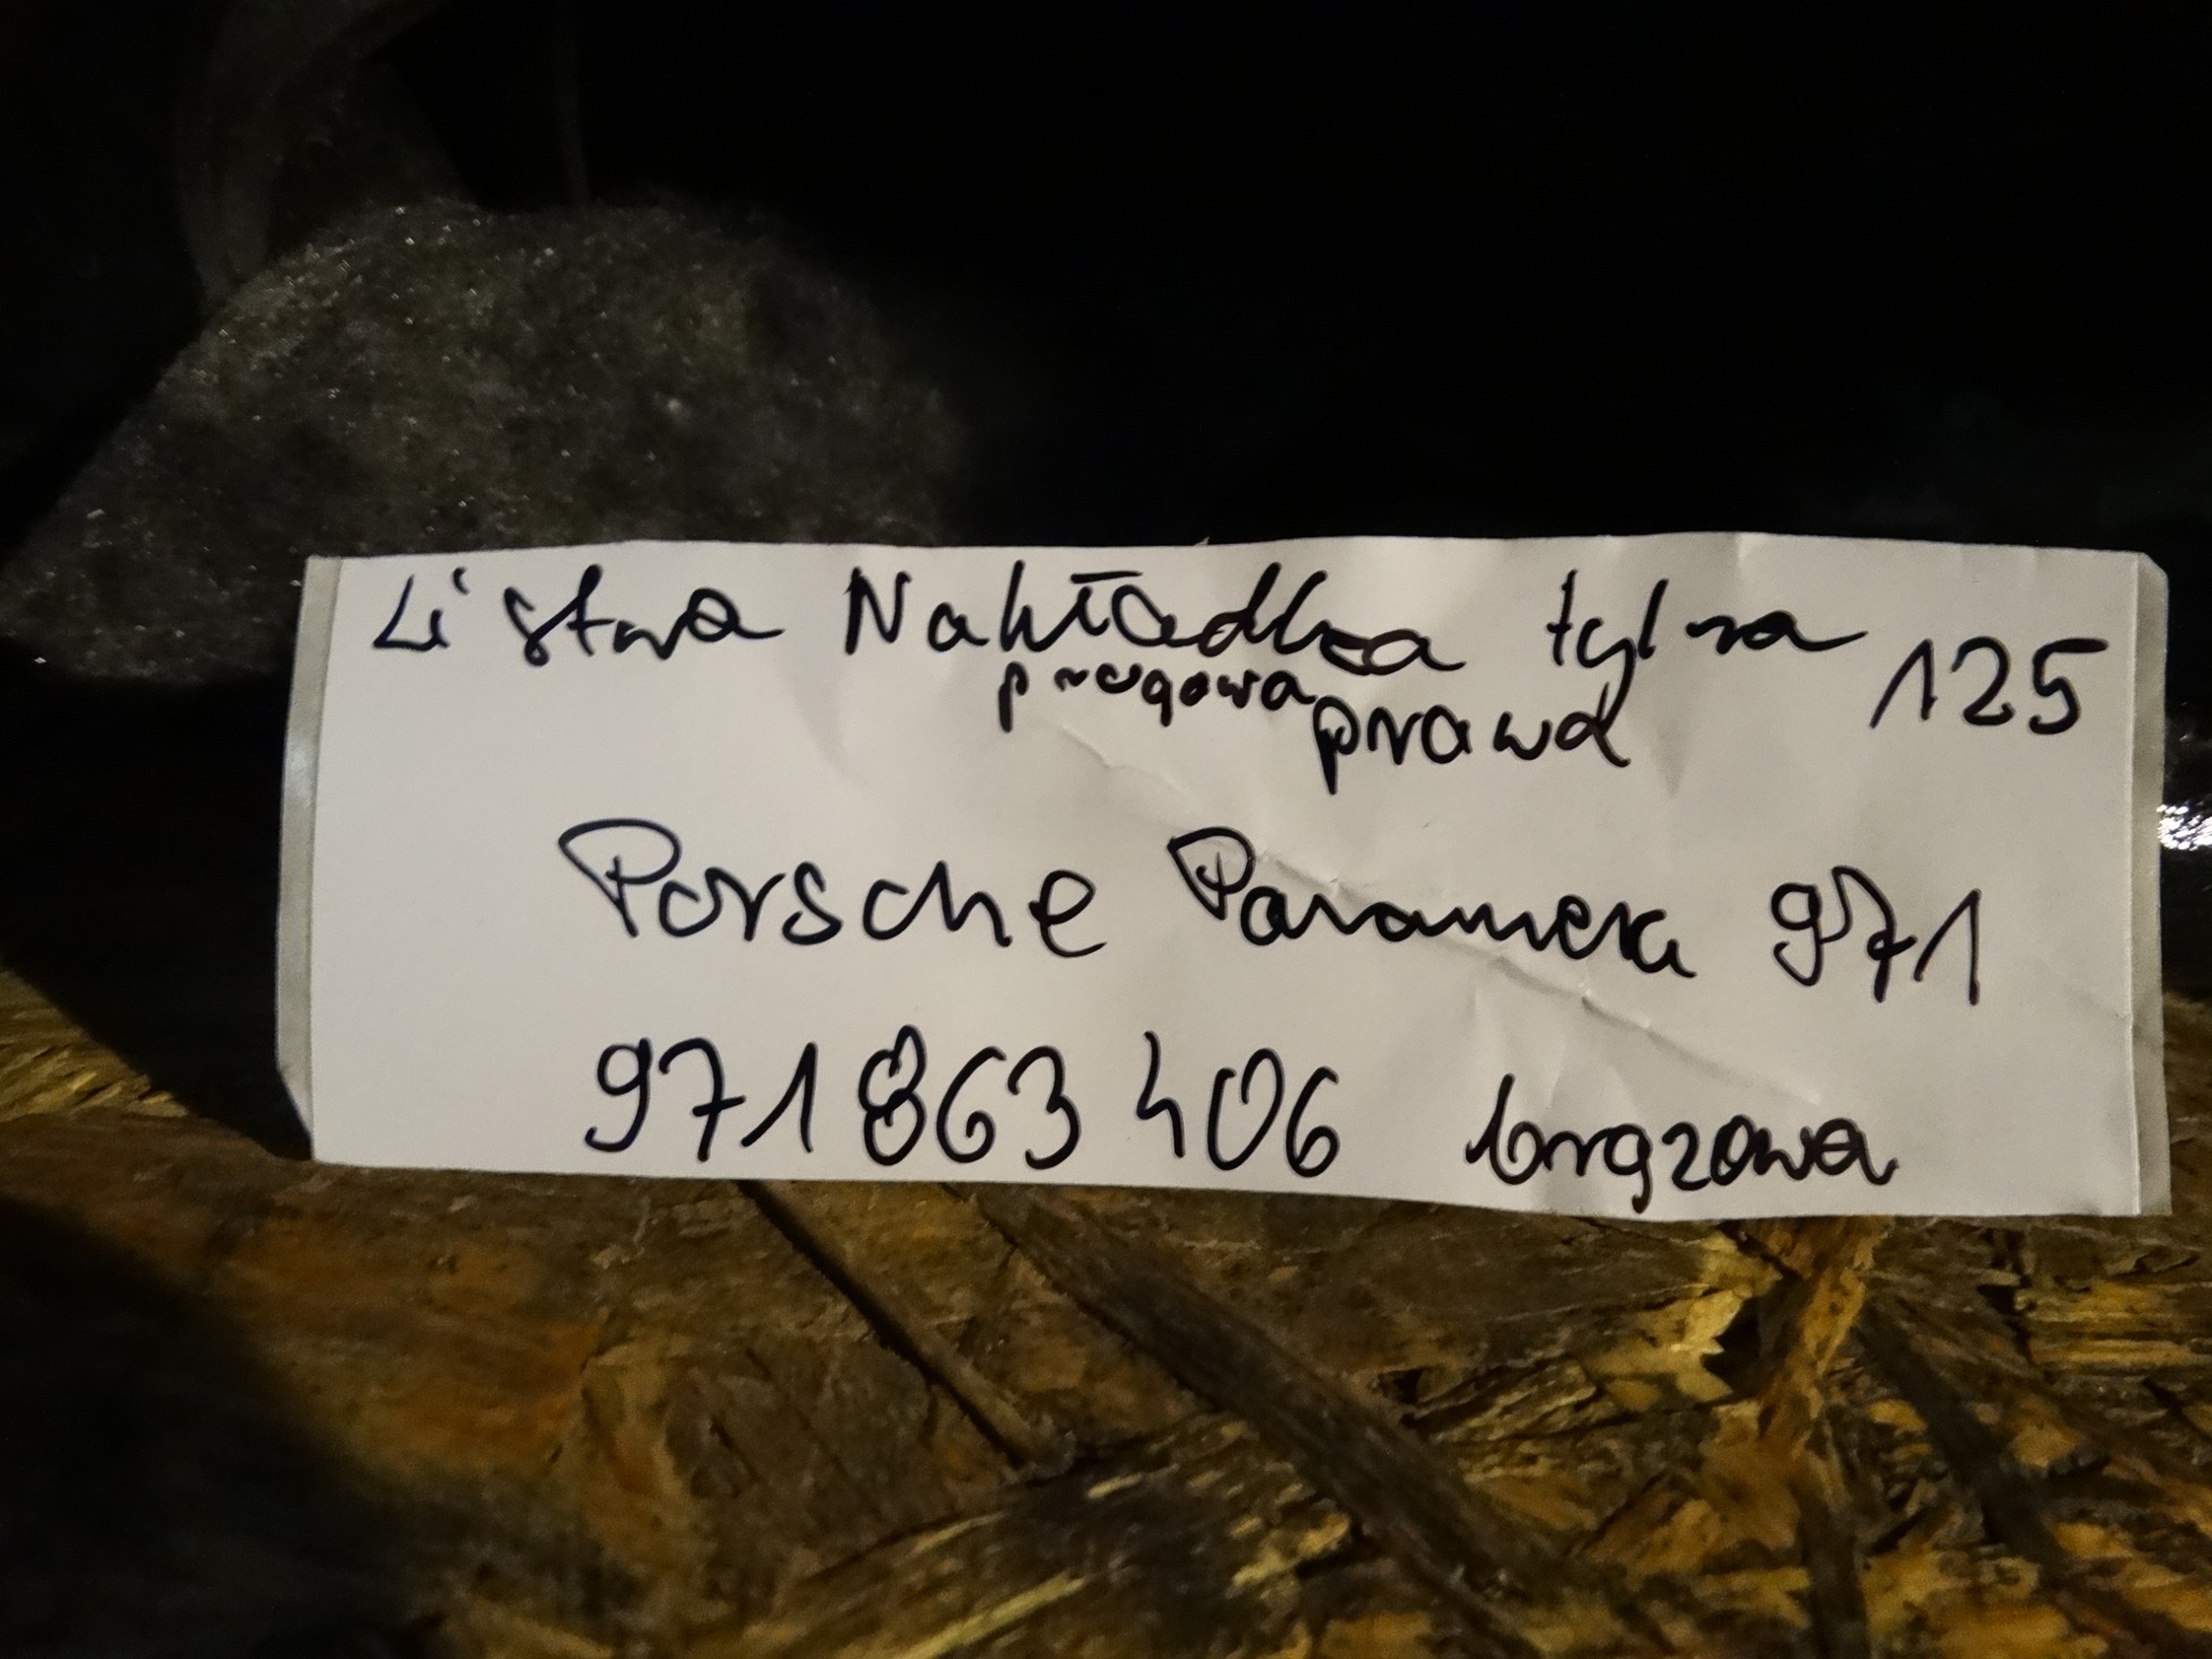 Listwa Nakładka tylna 125
progowa prawa
Porsche Panamera 971
971 863 406 brązowa